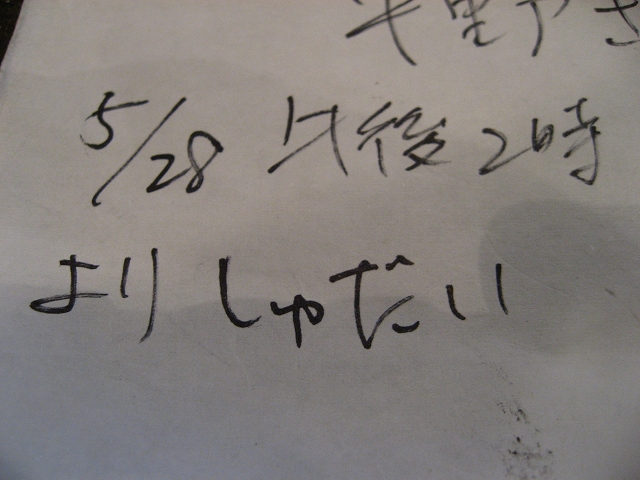 5/28 午後2時
より しゃだい